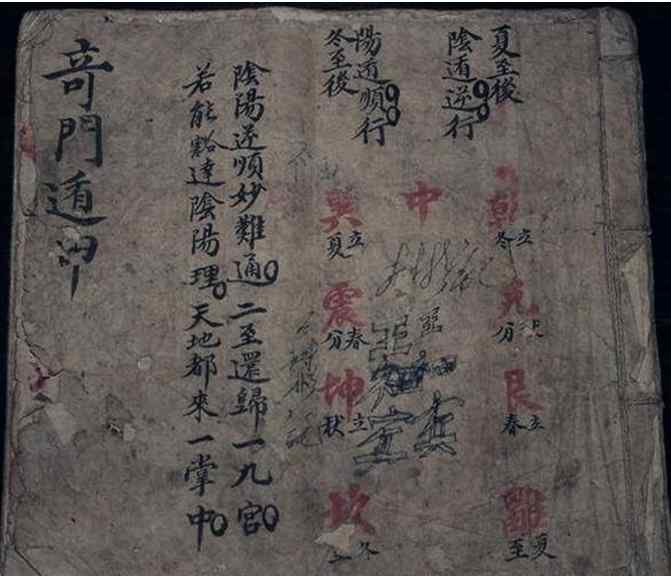 夏至後
陰遁逆行
陽遁順行
冬至後
乾
立冬
兌
秋分
艮
立春
離
夏至
中
巽
立夏
震
春分
坤
立秋
坎
冬至
陰陽逆順妙難通。二至還歸一九宮。
若能豁達陰陽理。天地都來一掌中。
竒門遁甲